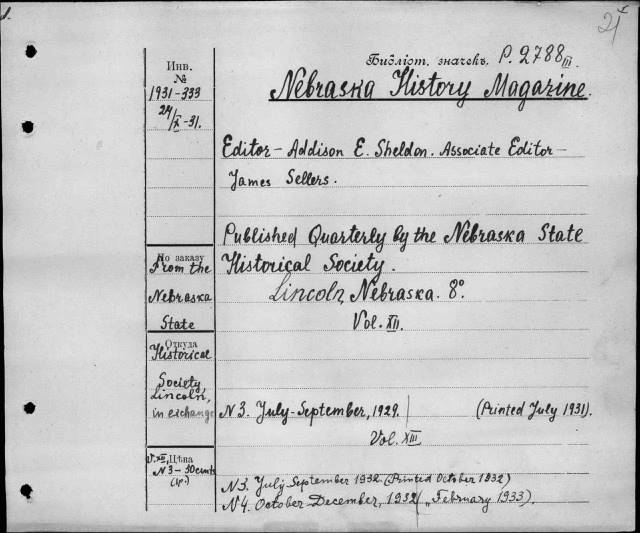 1.
24
Инв.
№
1931-333
24/X-31.
Библіот. значекъ. P. 2788 III.
Nebraska History Magazine.
Editor - Addison E. Sheldon. Associate Editor -
James Sellers.
Published Quarterly by the Nebraska State
Historical Society.
Lincoln, Nebraska. 8°.
Vol. XII.
По заказу
From the
Nebraska
State
Откуда
Historical
Society,
Lincoln,
in exchange
N 3. July-September, 1929. (Printed July 1931).
Vol. XIII
V. XII, Цѣна
N 3 - 30 cents
N 3. July-September 1932. (Printed October 1932)
N 4. October December, 1932 ( „ February 1933).